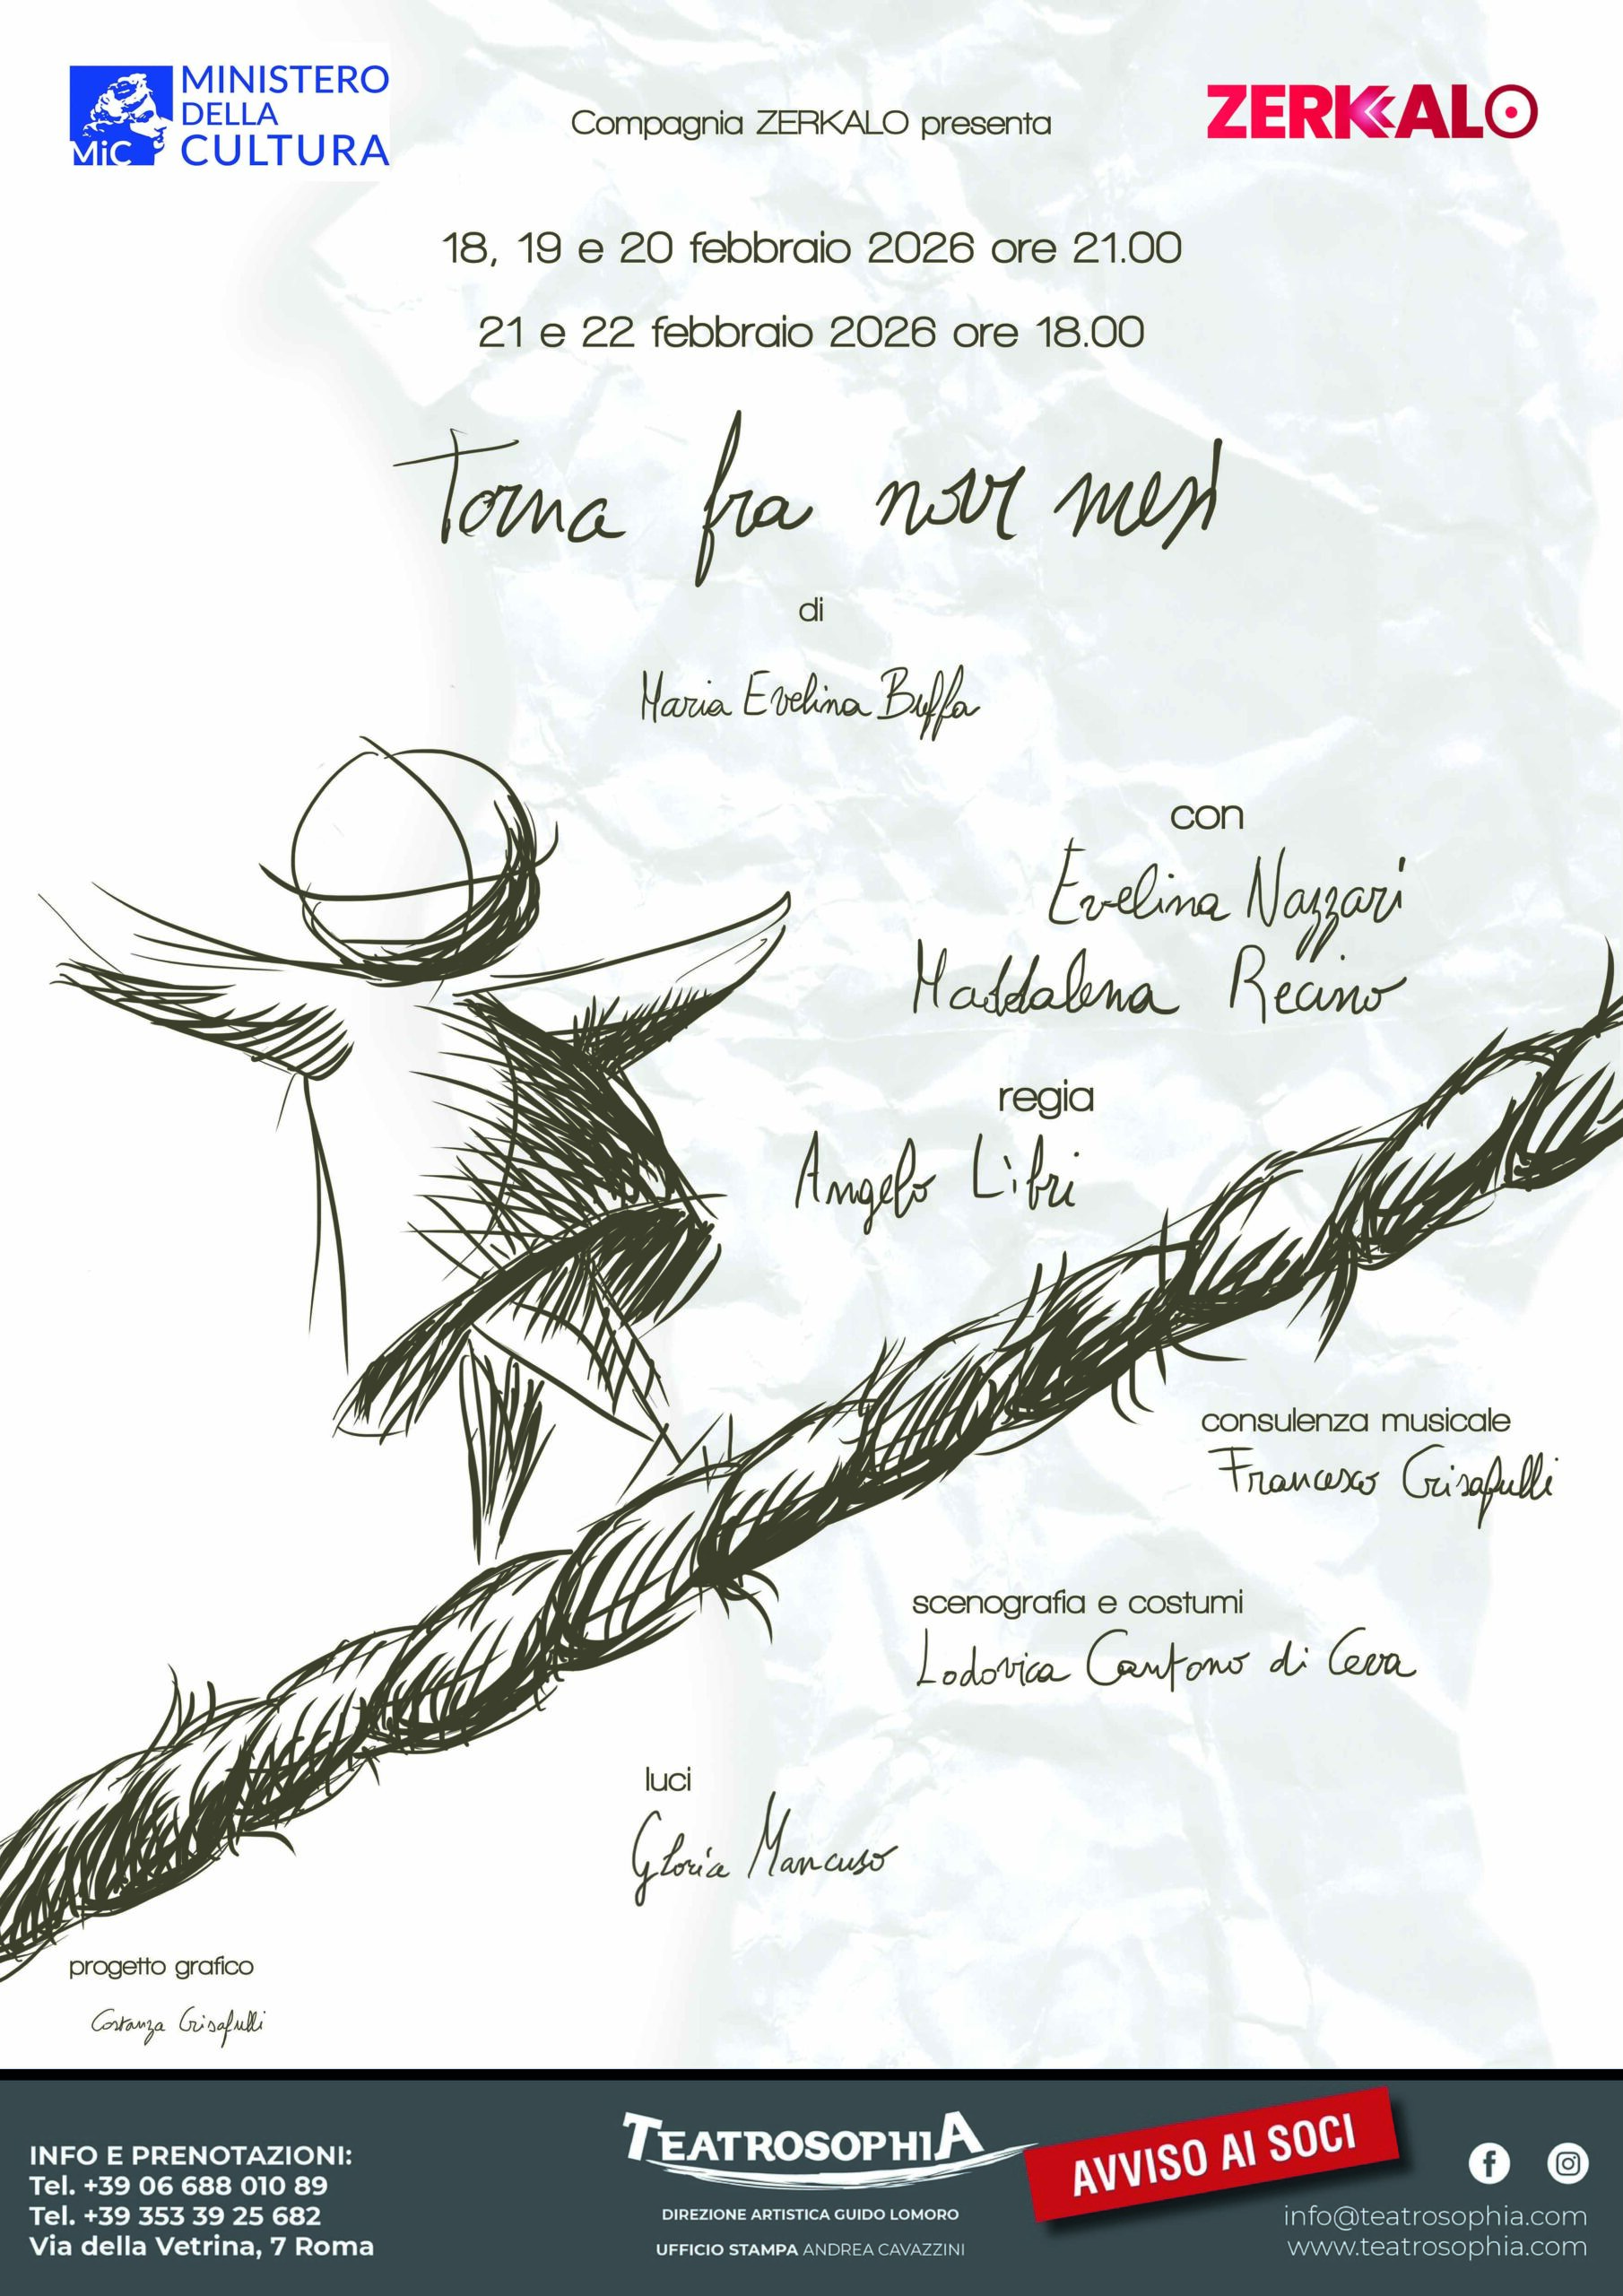 MINISTERO
DELLA
CULTURA
MiC
Compagnia ZERKALO presenta
ZERKALO
18, 19 e 20 febbraio 2026 ore 21.00
21 e 22 febbraio 2026 ore 18.00
Torna fra nove mesi
di
Maria Evelina Buffa
con
Evelina Nazzari
Maddalena Recino
regia
Angelo Libri
consulenza musicale
Francesco Crisafulli
scenografia e costumi
Lodovica Cantono di Ceva
luci
Gloria Mancuso
progetto grafico
Costanza Crisafulli
INFO E PRENOTAZIONI:
Tel. +39 06 688 010 89
Tel. +39 353 39 25 682
Via della Vetrina, 7 Roma
TEATROSOPHIA
DIREZIONE ARTISTICA GUIDO LOMORO
UFFICIO STAMPA ANDREA CAVAZZINI
AVVISO AI SOCI
info@teatrosophia.com
www.teatrosophia.com